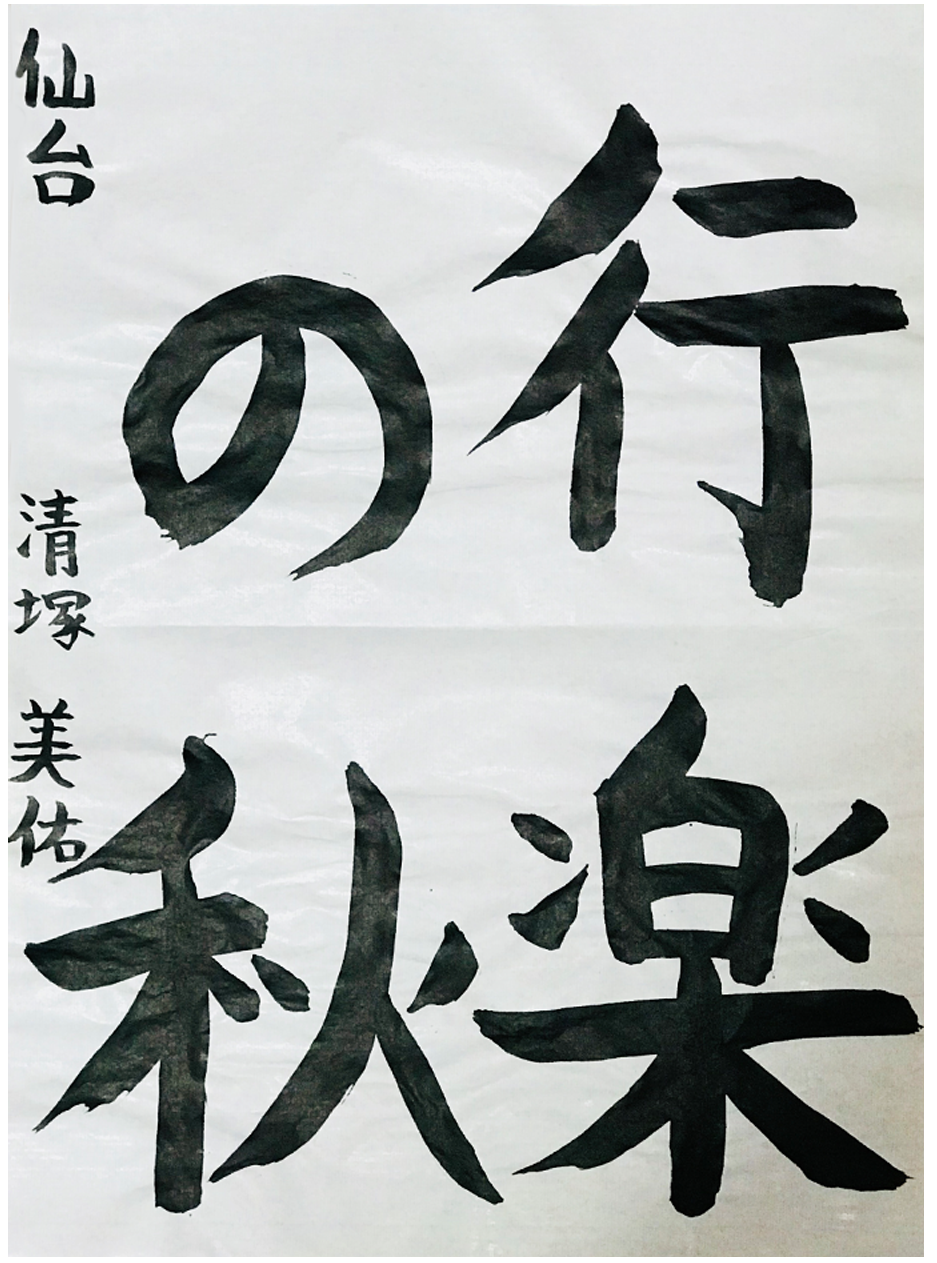 行楽
の秋
仙台 清塚 美佑